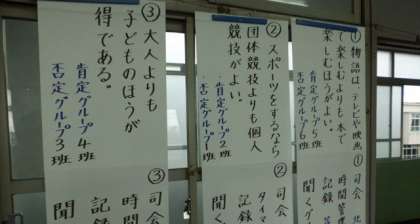 ①物語は、テレビや映画
で楽しむよりも、本で
楽しむほうがよい。
肯定グループ5班
否定グループ6班
① 司会
時間
記録
聞くグ
②スポーツをするなら
団体競技よりも個人
競技がよい。
肯定グループ2班
否定グループ1班
② 司会
タイム
記録
聞く
③大人よりも
子どものほうが
得である。
肯定グループ4班
否定グループ3班
③ 司会
時間
記録
聞